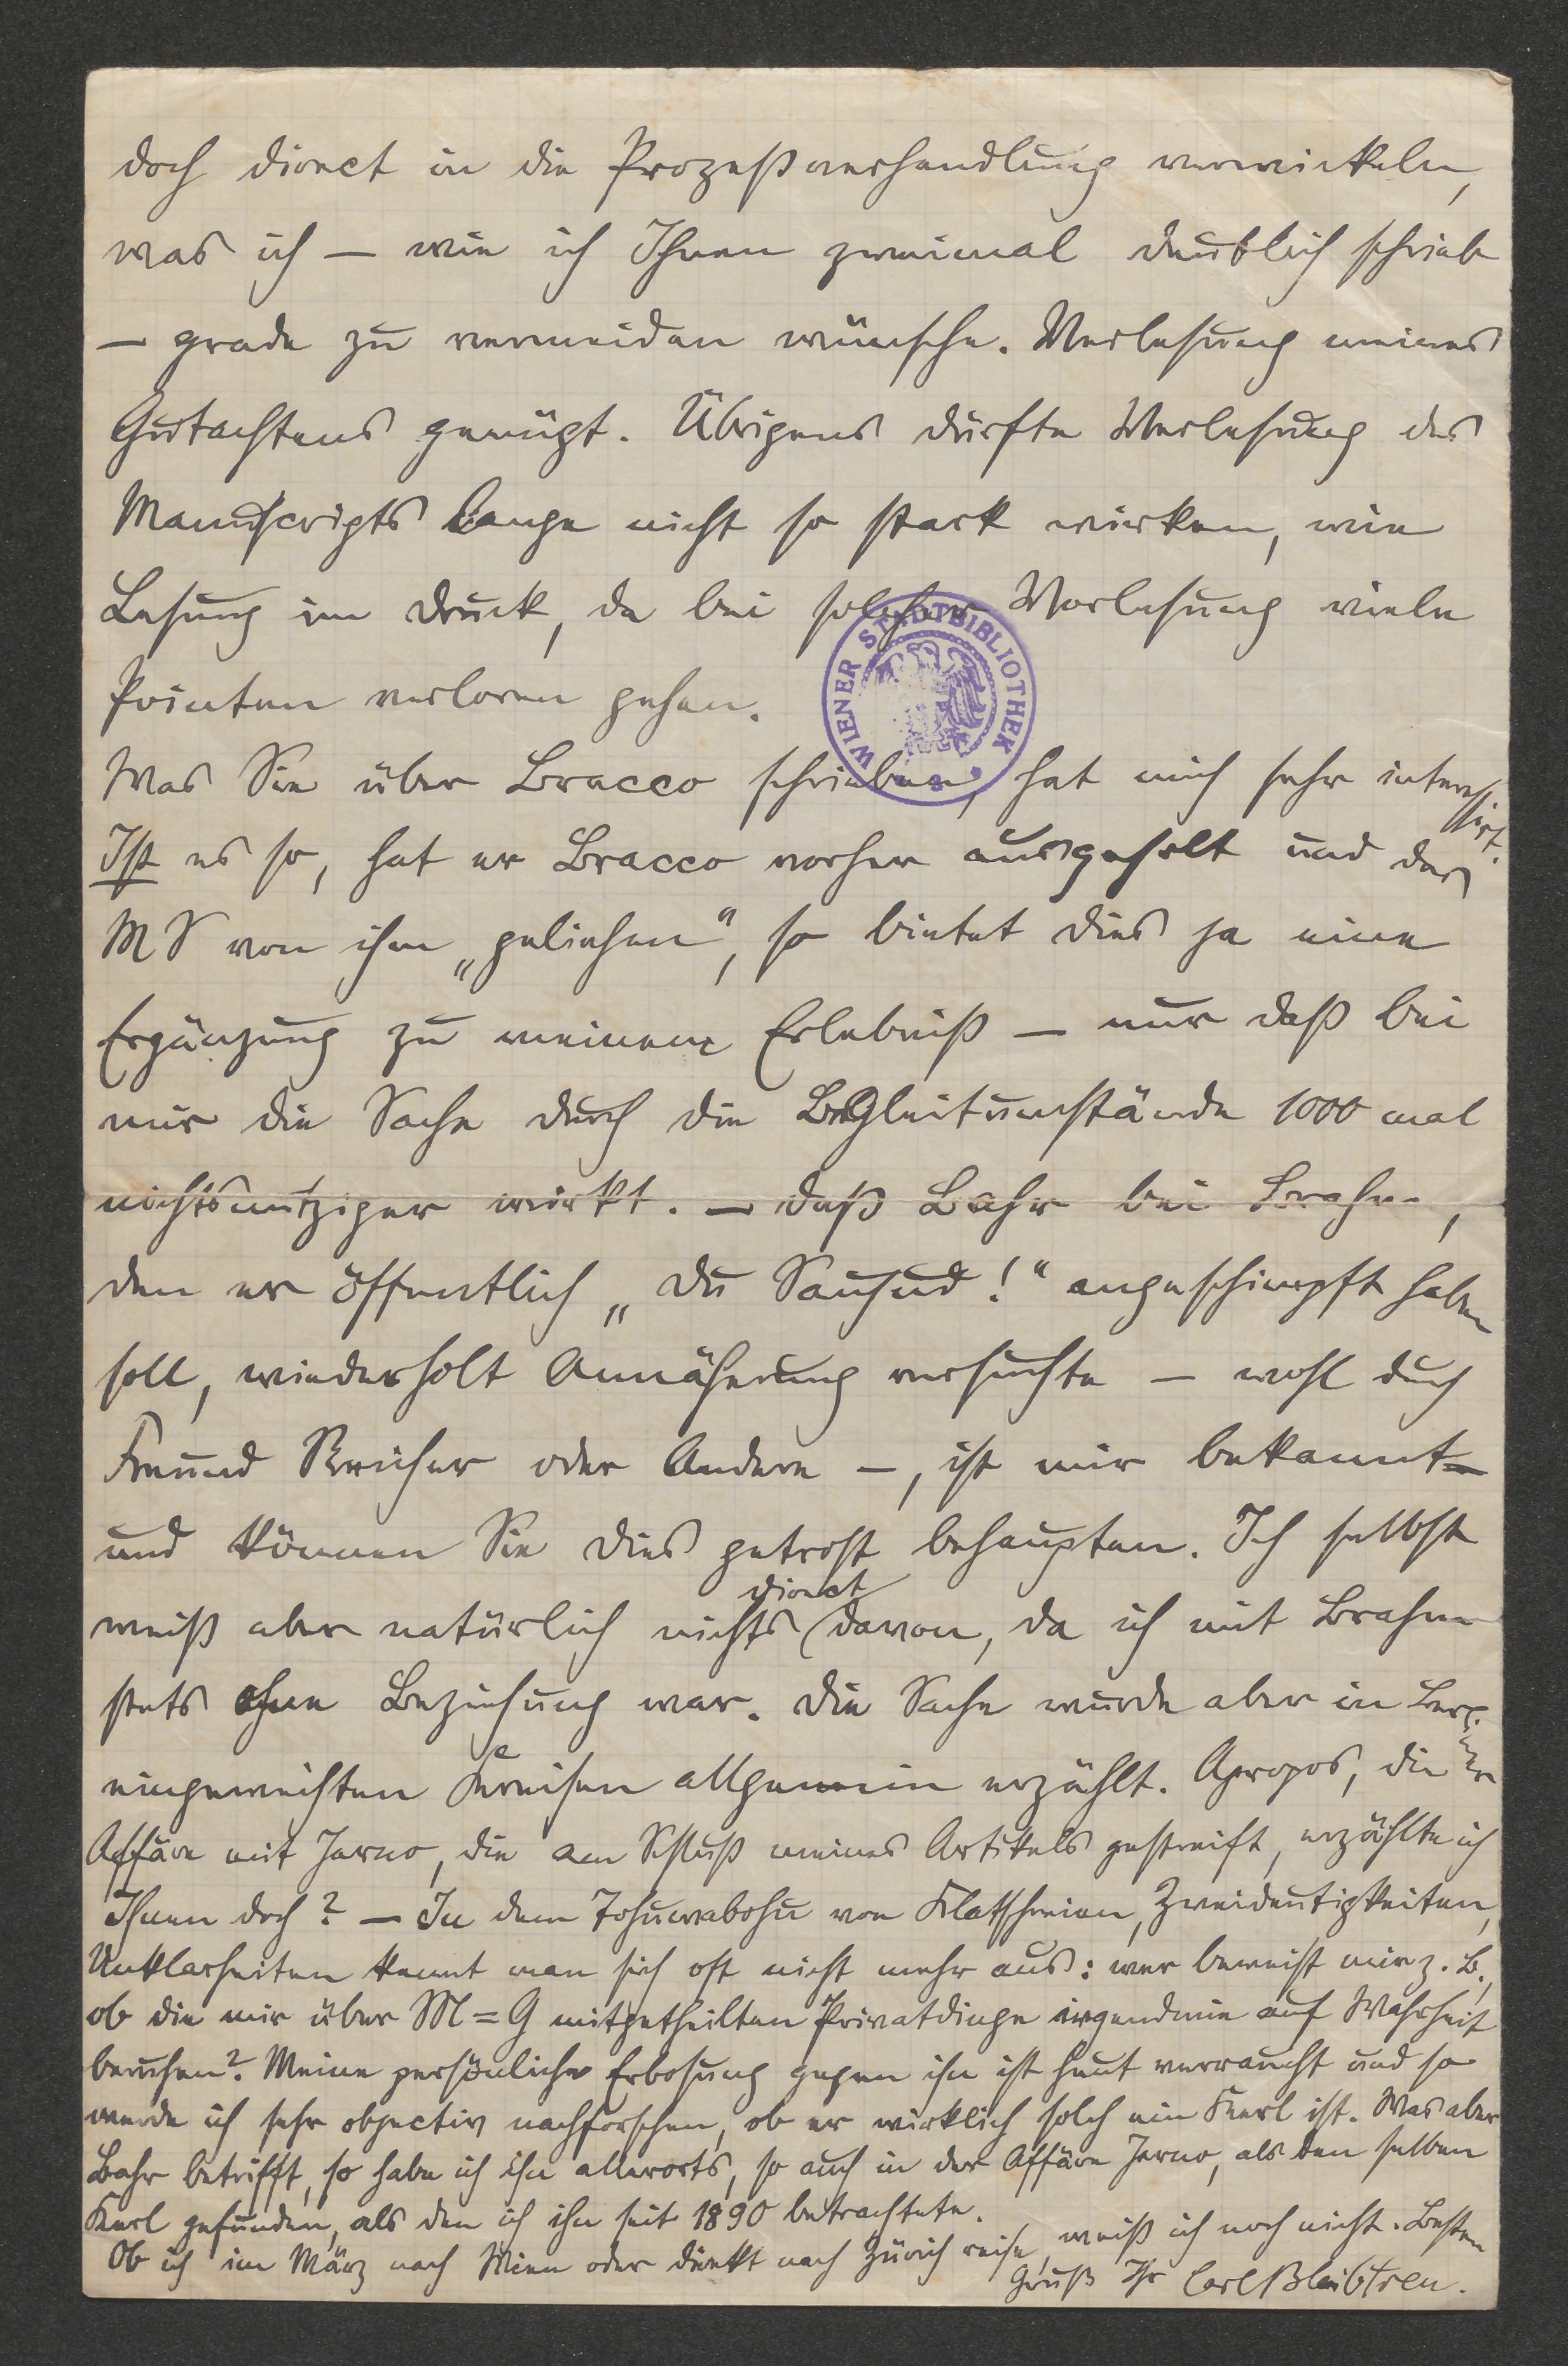 doch direct in die Prozeßverhandlung verwickeln,
was ich — wie ich Ihnen zweimal deutlich schrieb
— grade zu vermeiden wünsche. Verlesung meines
Gutachtens genügt. Übrigens dürfte Verlesung des
Manuscripts lange nicht so stark wirken, wie
Lesung im Druck, da bei solcher Vorlesung viele
Pointen verloren gehen.
WIENER STADTBIBLIOTHEK
Was Sie über Bracco schrieben, hat mich sehr interessirt.
Ist es so, hat er Bracco vorher ausgeholt und das
MS von ihm „geliehen“, so bietet dies ja eine
Ergänzung zu meinem Erlebniß — nur daß bei
mir die Sache durch die Begleitumstände 1000 mal
nichtsnutziger wirkt. — Daß Bahr bei Brahm,
den er öffentlich „Du Sauhud!“ angeschimpft haben
soll, wiederholt Annäherung versuchte — wohl durch
Freund Reicher oder Andere —, ist mir bekannt
und können Sie dies getrost behaupten. Ich selbst
weiß aber natürlich nichts direct davon, da ich mit Brahm
stets ohne Beziehung war. Die Sache wurde aber in Berliner
eingeweihten Kreisen allgemein erzählt. Apropos, die
Affäre mit Jarno, die am Schluß meines Artikels gestreift, erzählte ich
Ihnen doch? — In dem Tohuwabohu von Klatschereien, Zweideutigkeiten,
Unklarheiten kennt man sich oft nicht mehr aus: wer beweist mir z. B.,
ob die mir über M=G mitgetheilten Privatdinge irgendwie auf Wahrheit
beruhen? Meine persönliche Erbosung gegen ihn ist heut verraucht und so
werde ich sehr objectiv nachforschen, ob er wirklich solch ein Kerl ist. Was aber
Bahr betrifft, so habe ich ihn allerorts, so auch in der Affäre Jarno, als den selben
Kerl gefunden, als den ich ihn seit 1890 betrachtete.
Ob ich im März nach Wien oder direkt nach Zürich reise, weiß ich noch nicht. Besten
Gruß Ihr Carl Bleibtreu.